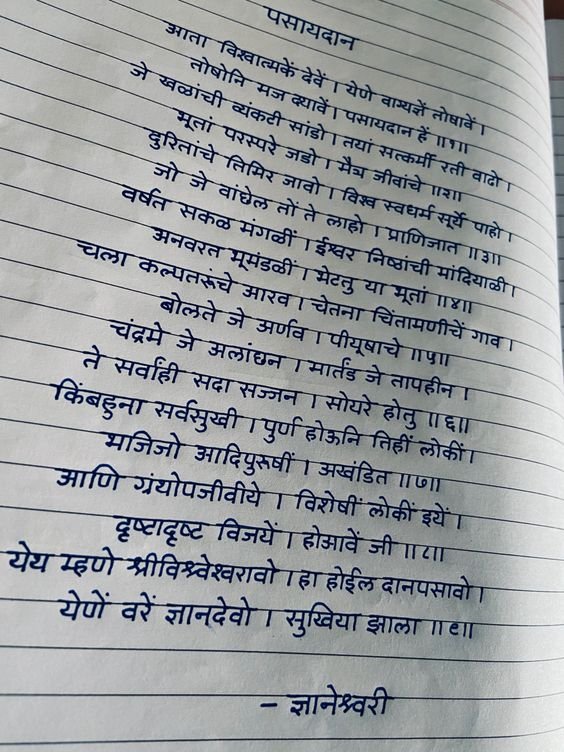 पसायदान
आता विश्वात्मकें देवें । येणे वाग्यज्ञें तोषावें ।
तोषोनि मज द्यावें । पसायदान हें ॥१॥
जे खळांची व्यंकटी सांडो । तयां सत्कर्मी रती वाढो ।
भूतां परस्परे जडो । मैत्र जीवांचे ॥२॥
दुरितांचे तिमिर जावो । विश्व स्वधर्म सूर्ये पाहो ।
जो जे वांछेल तों ते लाहो । प्राणिजात ॥३॥
वर्षत सकळ मंगळीं । ईश्वर निष्ठांची मांदियाळी ।
अनवरत भूमंडळीं । भेटतु या भूतां ॥४॥
चला कल्पतरुंचे आरव । चेतना चिंतामणीचें गाव ।
बोलते जे अर्णव । पीयूषाचे ॥५॥
चंद्रमे जे अलांछन । मार्तंड जे तापहीन ।
ते सर्वांही सदा सज्जन । सोयरे होतु ॥६॥
किंबहुना सर्वसुखी । पुर्ण होऊनि तिहीं लोकीं ।
भाजिजो आदिपुरुषीं । अखंडित ॥७॥
आणि ग्रंथोपजीवीये । विशेषीं लोकीं इयें ।
दृष्टादृष्ट विजयें । होआवें जी ॥८॥
येथ म्हणे श्रीविश्वेश्वरावो । हा होईल दानपसावो ।
येणें वरें ज्ञानदेवो । सुखिया झाला ॥९॥
- ज्ञानेश्वरी